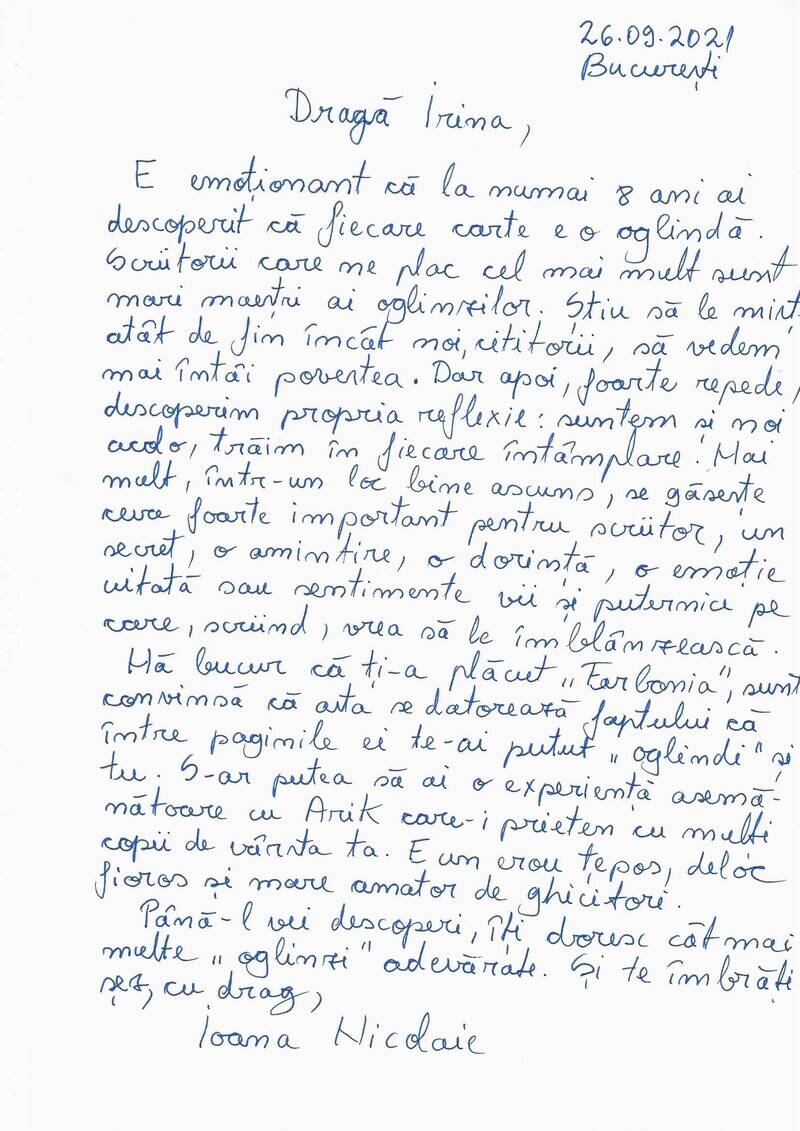 26.09.2021
București
Dragă Irina,
E emoționant că la numai 8 ani ai
descoperit că fiecare carte e o oglindă.
Scriitorii care ne plac cel mai mult sunt
mari maeștri ai oglinzilor. Știu să le mișt
atât de fin încât noi, cititorii, să vedem
mai întâi povestea. Dar apoi, foarte repede,
descoperim propria reflexie: suntem și noi
acolo, trăim în fiecare întâmplare. Mai
mult, într-un loc bine ascuns, se găsește
ceva foarte important pentru scriitor, un
secret, o amintire, o dorință, o emoție
uitată sau sentimente vii și puternice pe
care, scriind, vrea să le îmblânzească.
Mă bucur că ți-a plăcut „Ferbonia”, sunt
convinsă că asta se datorează faptului că
între paginile ei te-ai putut „oglindi” și
tu. S-ar putea să ai o experiență asemă-
nătoare cu Arik care-i prieten cu mulți
copii de vârsta ta. E un erou țepos, deloc
fioros și mare amator de ghicitori.
Până-l vei descoperi, îți doresc cât mai
multe „oglinzi” adevărate. Și te îmbrăți
șez, cu drag,
Ioana Nicolaie